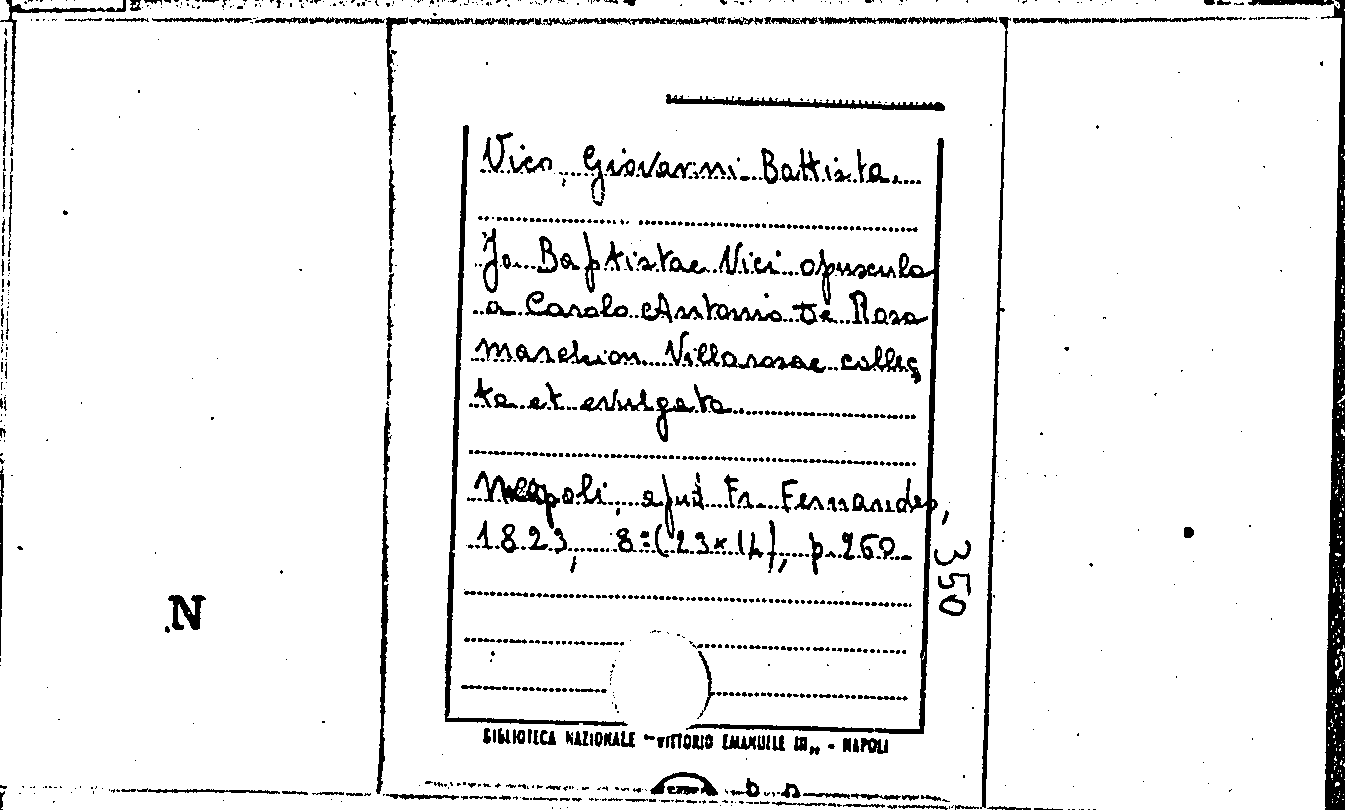 Vico, Giovanni Battista
Jo Baptistae Vici opuscula
a Carolo Antonio De Rosa
marchion Villarosae collec
ta et evulgata
Neapoli, apud Fr. Fernandes,
1823, 8º (23x14), p. 260
350
N
BIBLIOTECA NAZIONALE "VITTORIO EMANUELE III" - NAPOLI